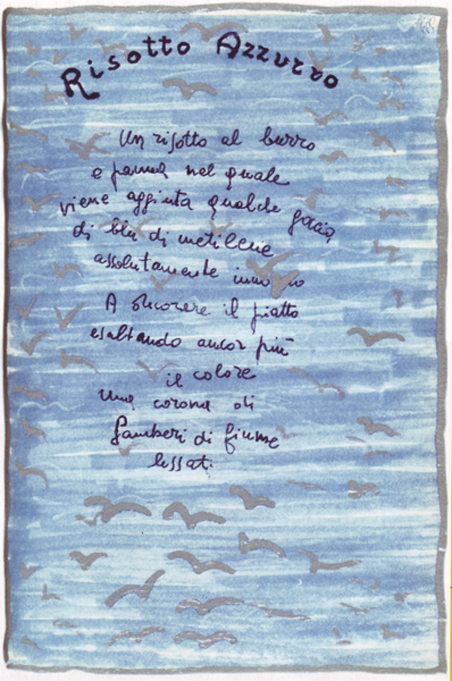 Risotto Azzurro
Un risotto al burro
e panna nel quale
viene aggiunta qualche goccia
di blu di metilene
assolutamente
A decorare il piatto
esaltando ancor più
il colore
una corona di
Gamberi di fiume
lessati.